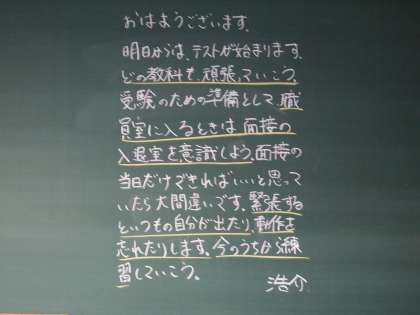 おはようございます。
明日からは、テストが始まります。
どの教科も、頑張っていこう。
受験のための準備として、職
員室に入るときは、面接の
入退室を意識しよう。面接の
当日だけできればいいと思って
いたら大間違いです。緊張する
といつもの自分が出たり、動作を
忘れたりします。今のうちから練
習していこう。
浩介